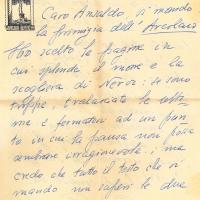 Caro Ansaldo, ti mando
la primizia dell'Arcolaio
Ho scelto la pagina in
cui splende il mare e la
scogliera di Nervi: se sono
troppe, tralasciate le ultime
e fermatevi ad un pun-
to in cui la pausa non possa
sembrare irragionevole; ma
credo che tutto il testo che vi
mando non superi le due